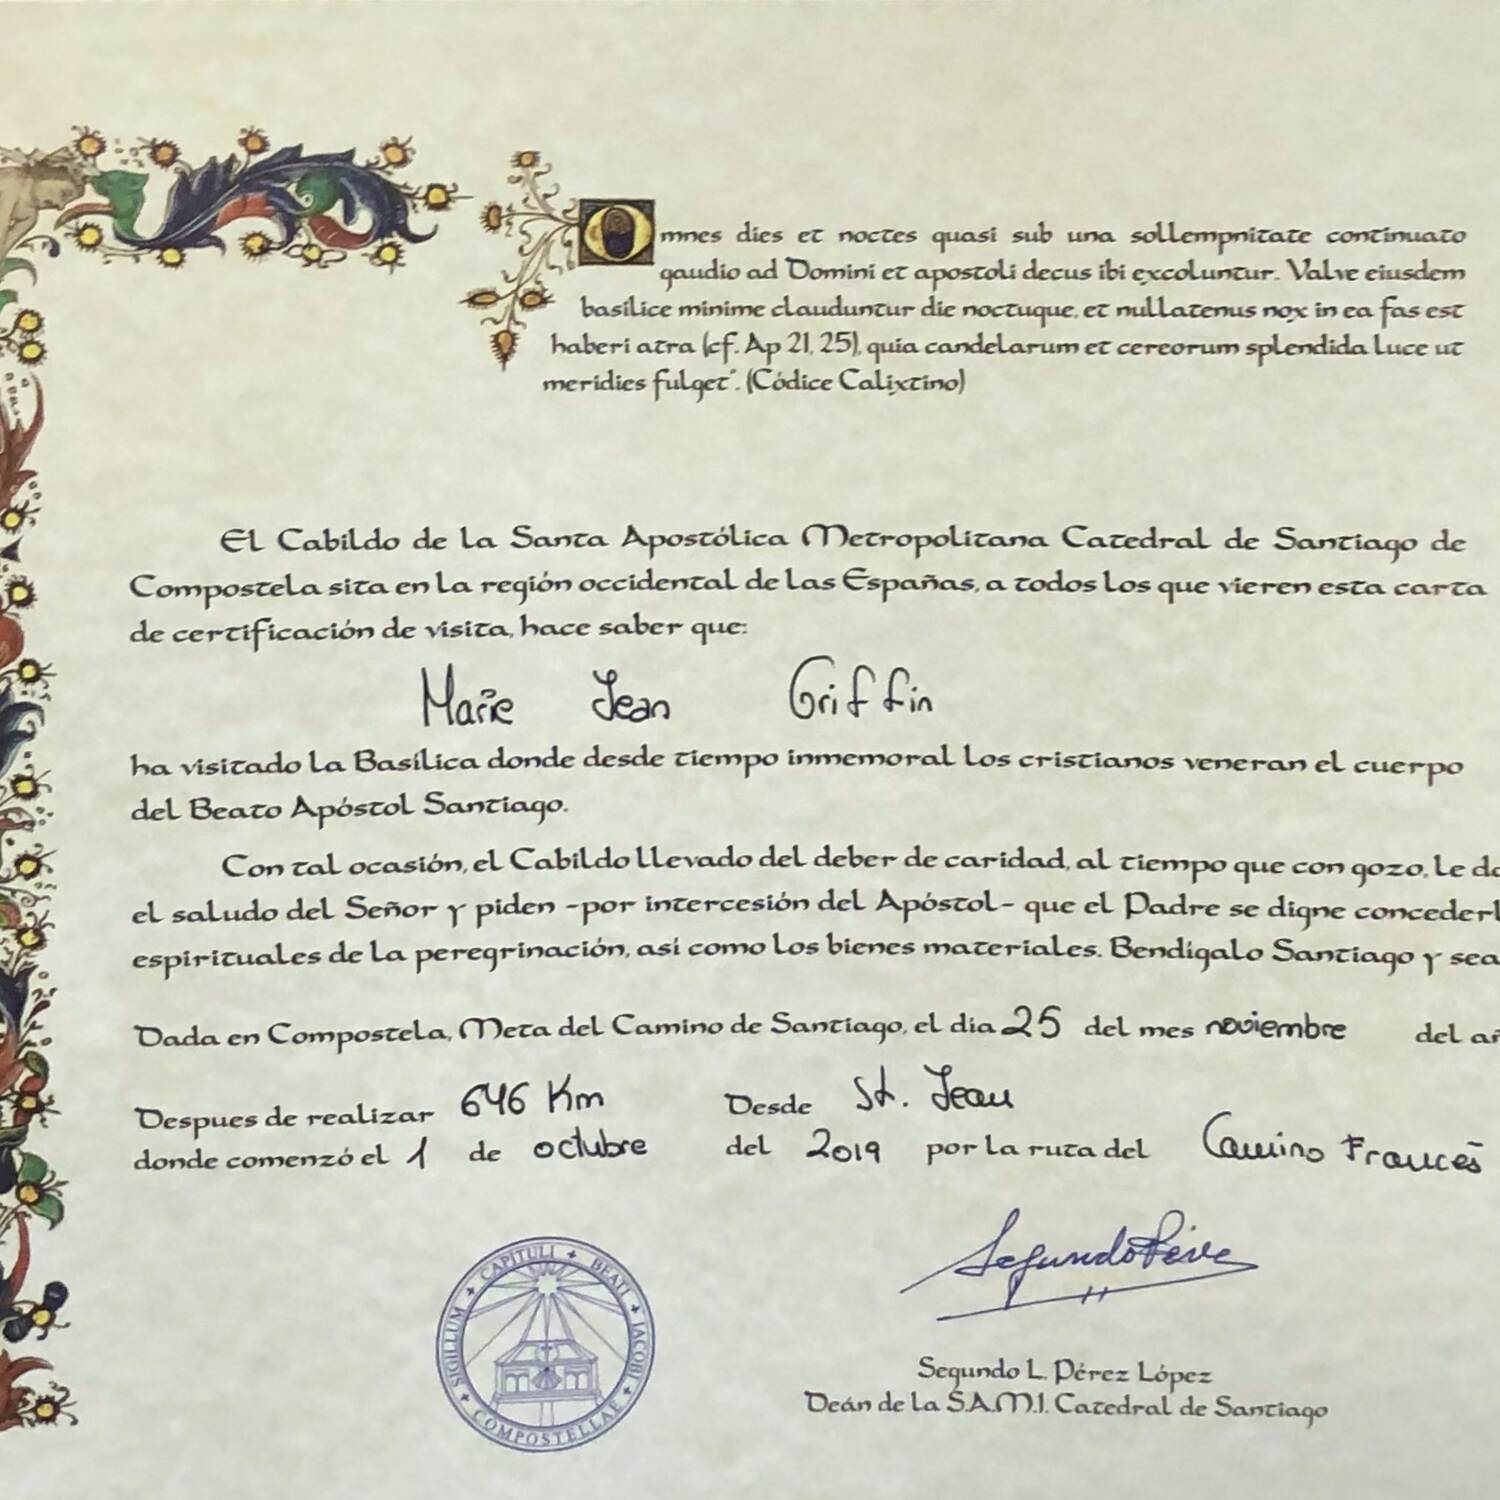 Omnes dies et noctes quasi sub una sollempnitate continuato
gaudio ad Domini et apostoli decus ibi excoluntur. Valve eiusdem
basilice minime clauduntur die noctuque, et nullatenus nox in ea fas est
haberi atra (cf. Ap 21, 25), quia candelarum et cereorum splendida luce ut
meridies fulget". (Códice Calixtino)
El Cabildo de la Santa Apostólica Metropolitana Catedral de Santiago de
Compostela sita en la región occidental de las Españas, a todos los que vieren esta carta
de certificación de visita, hace saber que:
Marie Jean Griffin
ha visitado la Basílica donde desde tiempo inmemoral los cristianos veneran el cuerpo
del Beato Apóstol Santiago.
Con tal ocasión, el Cabildo llevado del deber de caridad, al tiempo que con gozo, le da
el saludo del Señor y piden -por intercesión del Apóstol- que el Padre se digne concederl
espirituales de la peregrinación, así como los bienes materiales. Bendígalo Santiago y sea
Dada en Compostela, Meta del Camino de Santiago, el dia 25 del mes noviembre del añ
Despues de realizar 646 Km Desde St. Jean
donde comenzó el 1 de octubre del 2019 por la ruta del Camino Francés
SIGILLUM + CAPITULI + BEATI + IACOBI + COMPOSTELLAE +
Segundo Pérez
Segundo L. Pérez López
Deán de la S.A.M.I. Catedral de Santiago